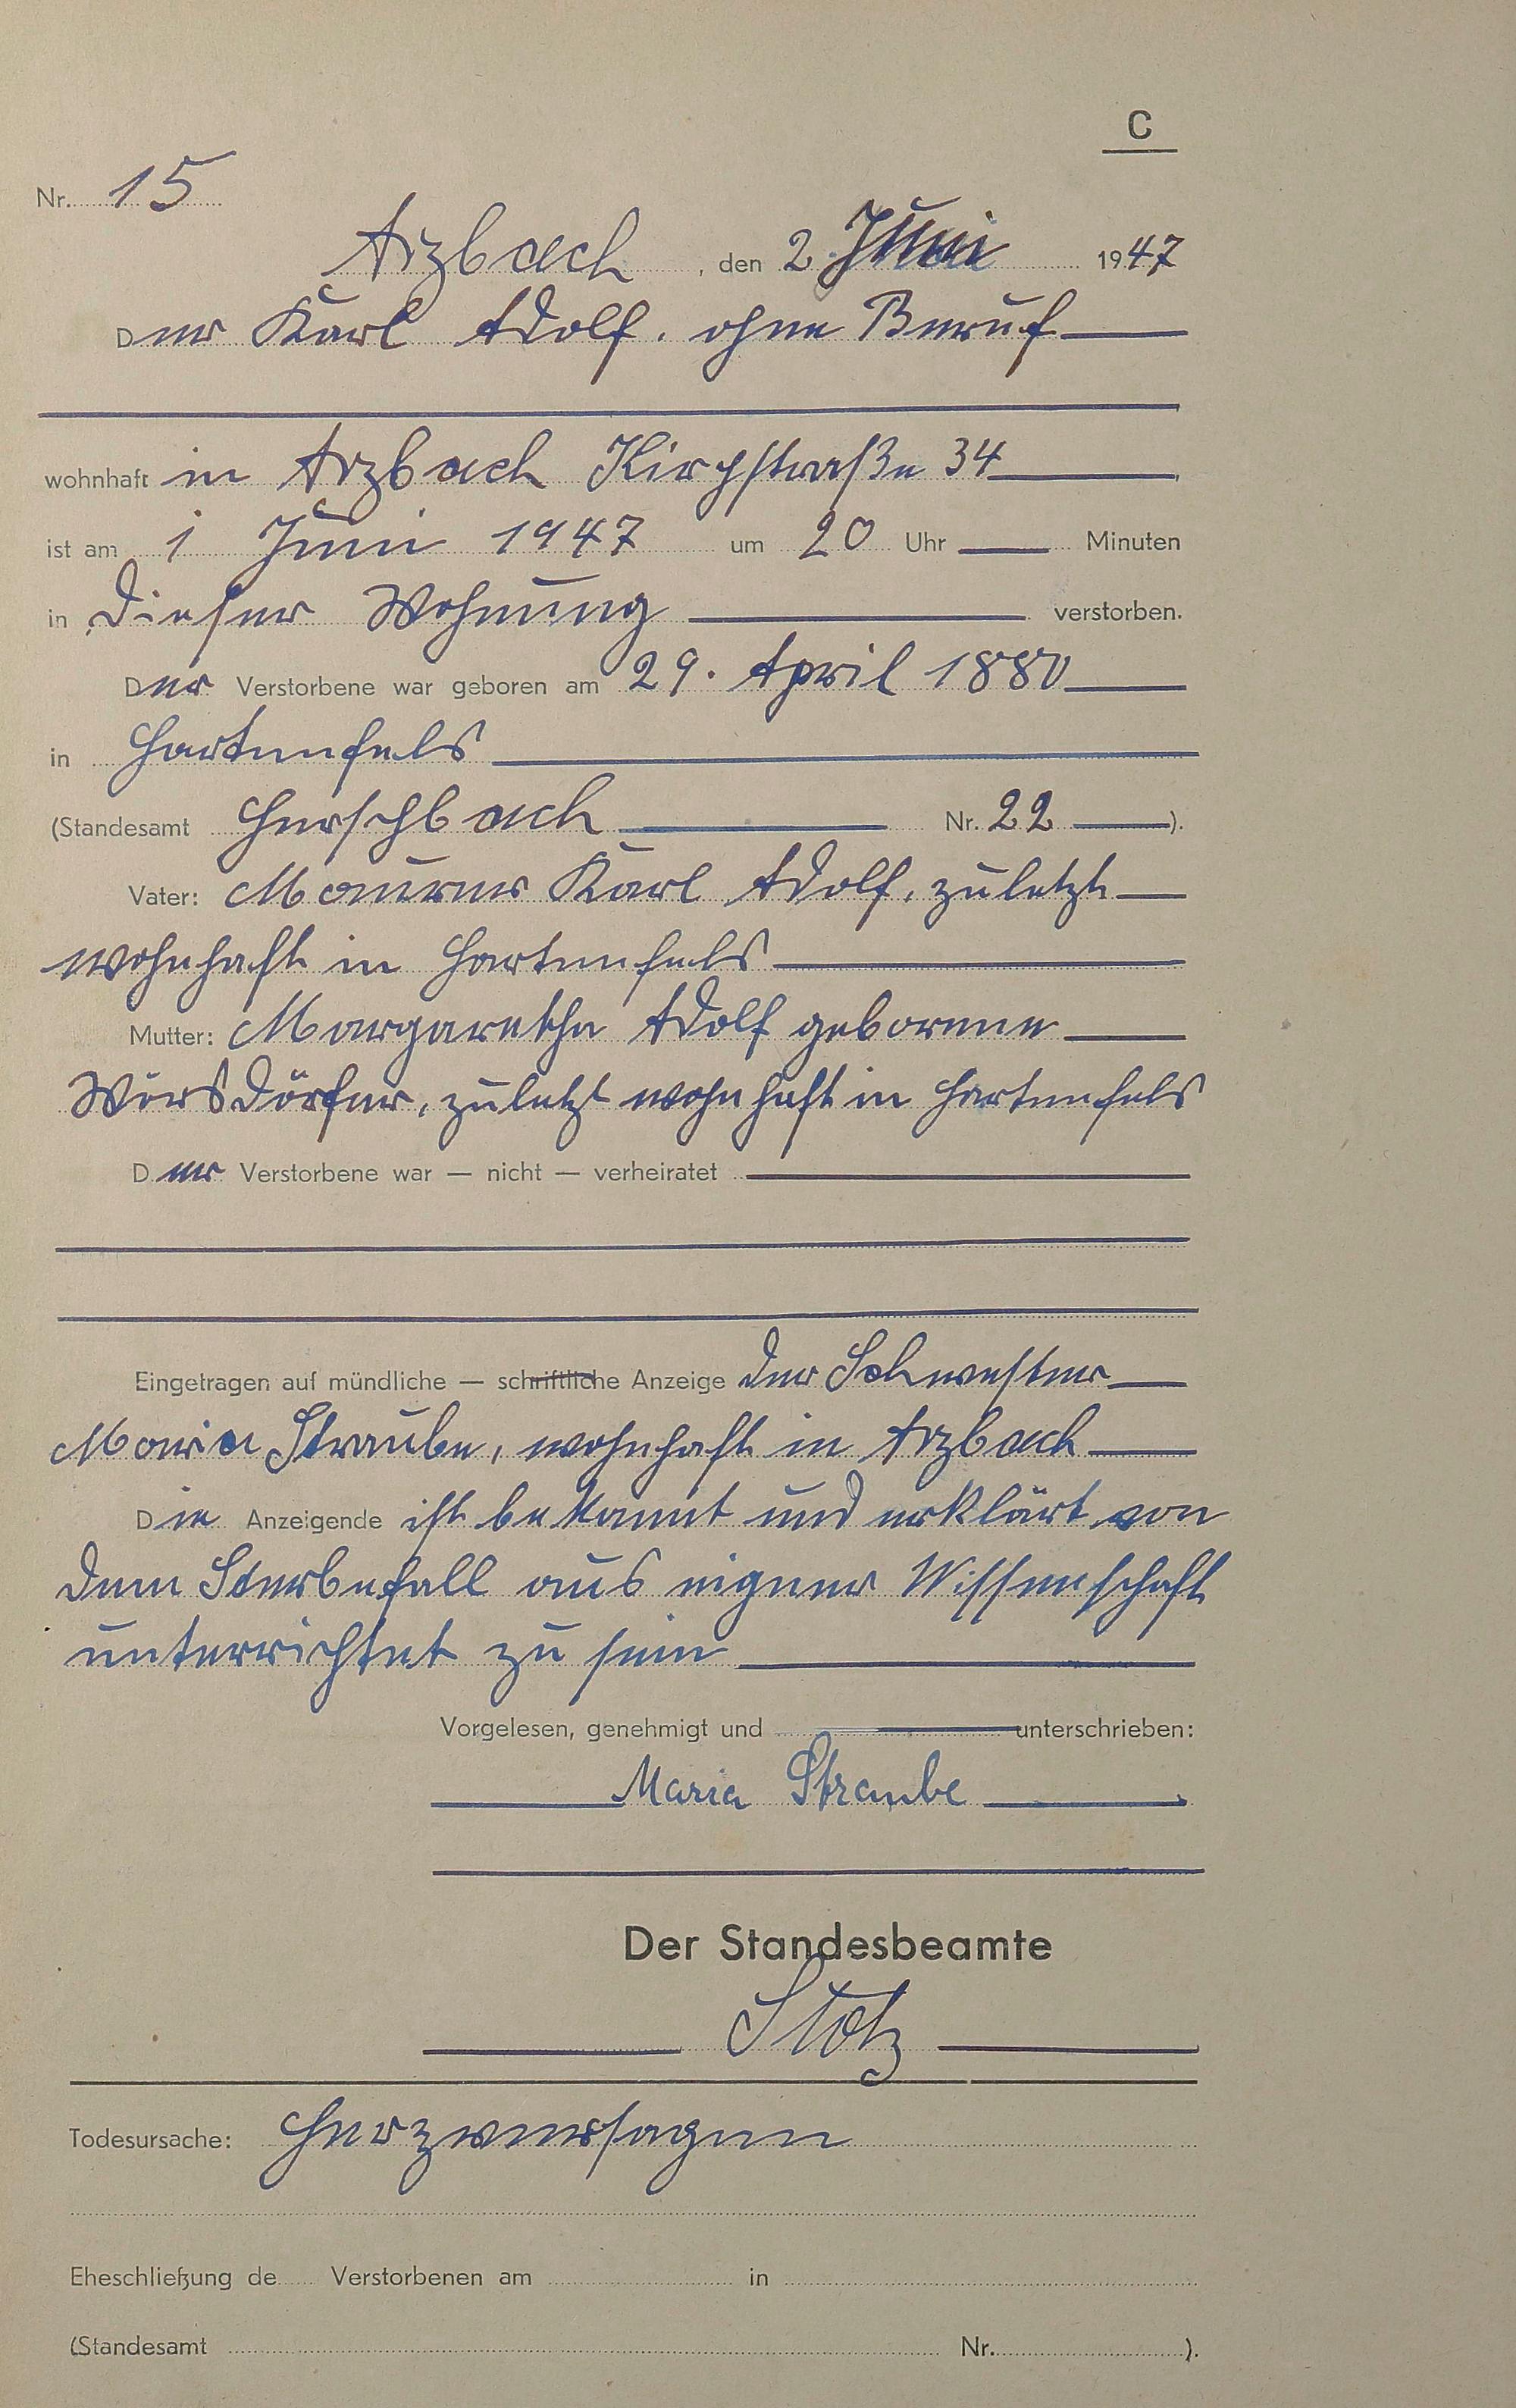 C
Nr. 15
Arzbach, den 2. Juni 1947
Der Karl Adolf, ohne Beruf
wohnhaft in Arzbach Kirchstraße 34
ist am 1 Juni 1947 um 20 Uhr — Minuten
in dieser Wohnung verstorben.
Der Verstorbene war geboren am 29. April 1880
in Hartenfels
(Standesamt Herschbach Nr. 22 —).
Vater: Maurer Karl Adolf, zuletzt
wohnhaft in Hartenfels
Mutter: Margaretha Adolf geborene
Wörsdörfer, zuletzt wohnhaft in Hartenfels
Der Verstorbene war — nicht — verheiratet
Eingetragen auf mündliche — schriftliche Anzeige der Schwester
Maria Straube, wohnhaft in Arzbach
Die Anzeigende ist bekannt und erklärt von
dem Sterbefall aus eigner Wissenschaft
unterrichtet zu sein
Vorgelesen, genehmigt und unterschrieben:
Maria Straube
Der Standesbeamte
Stotz
Todesursache: Herzversagen
Eheschließung de Verstorbenen am in
(Standesamt Nr. ).